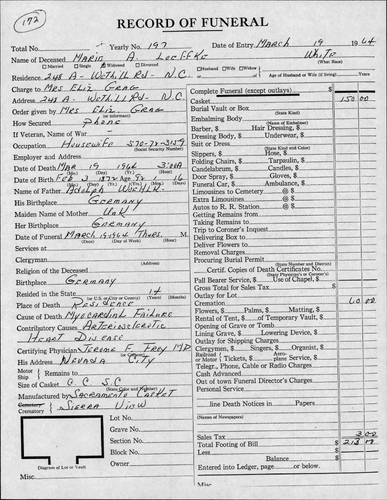 172
RECORD OF FUNERAL
Total No. Yearly No. 197 Date of Entry March 19 1964
Name of Deceased Marie A. White
Married Single Widowed Divorced Husband Wife Widow (What Race)
Residence 248 A- Rd- N.C. Age of Husband or Wife (if living) Years
Charge to Mrs Eliz
Address 248 A- Rd- N.C.
Order given by Mrs Eliz
How Secured Phone
If Veteran, Name of War
Occupation Housewife
(Social Security Number)
Employer and Address
Date of Death Mar 19 1964
Date of Birth Feb 3 1872 Age 92 1 16
Name of Father Adolph
His Birthplace Germany
Maiden Name of Mother Unk
Her Birthplace Germany
Date of Funeral March 19 1964 Thurs. M
(Date) (Day of Week) (Hour)
Services at
Clergyman
(Address)
Religion of the Deceased
Birthplace Germany
Resided in the State 14
(or U.S., City or County) (Years) (Months)
Place of Death Residence
Cause of Death Myocardial Failure
Contributory Causes Arteriosclerotic
Heart Disease
Certifying Physician Jerome F. Frey MD
His Address Nevada City
Motor
Ship Remains to
Size of Casket C C S.C
Manufactured by Sacramento Casket
Cemetery
Crematory Sierra View
Lot No.
Grave No.
Section No.
Block No.
Owner
Diagram of Lot or Vault
Misc.
Complete Funeral (except outlays) $
Casket 150 00
Burial Vault or Box
(State Kind)
Embalming Body
(Name of Embalmer)
Barber, $ Hair Dressing, $
Dressing Body, $ Underwear, $
Suit or Dress
(State Kind and Color)
Slippers, $ Hose, $
Folding Chairs, $ Tarpaulin, $
Candelabrum, $ Candles, $
Door Spray, $ Gloves, $
Funeral Car, $ Ambulance, $
Limousines to Cemetery @ $
Extra Limousines @ $
Autos to R. R. Station @ $
Getting Remains from
Taking Remains to
Trip to Coroner's Inquest
Delivering Box to
Deliver Flowers to
Removal Charges
Procuring Burial Permit
(State Number and District)
Certif. Copies of Death Certificates No.
(State Physician's or Coroner's)
Pall Bearer Service, $ Use of Chapel, $
Gross Sales Tax on Outlay $
Total
Outlay for Lot
Cremation 60 00
Flowers, $ Palms, $ Matting, $
Rental of Tent, $ of Temporary Vault, $
Opening of Grave or Tomb
Lining Grave, $ Lowering Device, $
Outlay for Shipping Charges
Clergymen, $ Singers, $ Organist, $
Railroad or Motor Tickets, $ Aero-plane Service, $
Telegr., Phone, Cable or Radio Charges
Cash Advanced
Out of town Funeral Director's Charges
Personal Service
line Death Notices in Papers
(Names of Newspapers)
Sales Tax 3 00
Total Footing of Bill $ 213 00
Less
Balance $
Entered into Ledger, page or below.
Misc